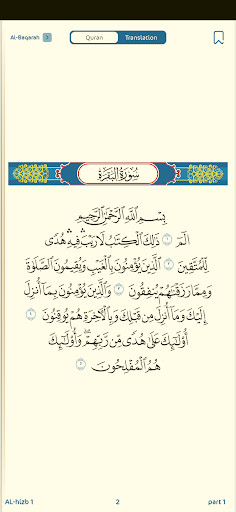 AL-Baqarah 2
Quran Translation
سُورَةُ البَقَرَةِ
بِسْمِ اللَّهِ الرَّحْمَٰنِ الرَّحِيمِ
الٓمٓ ۝١ ذَٰلِكَ الْكِتَابُ لَا رَيْبَ ۛ فِيهِ ۛ هُدًى
لِّلْمُتَّقِينَ ۝٢ الَّذِينَ يُؤْمِنُونَ بِالْغَيْبِ وَيُقِيمُونَ الصَّلَاةَ
وَمِمَّا رَزَقْنَاهُمْ يُنفِقُونَ ۝٣ وَالَّذِينَ يُؤْمِنُونَ بِمَا أُنزِلَ
إِلَيْكَ وَمَا أُنزِلَ مِن قَبْلِكَ وَبِالْآخِرَةِ هُمْ يُوقِنُونَ ۝٤
أُولَٰئِكَ عَلَىٰ هُدًى مِّن رَّبِّهِمْ ۖ وَأُولَٰئِكَ
هُمُ الْمُفْلِحُونَ ۝٥
AL-hizb 1 2 part 1